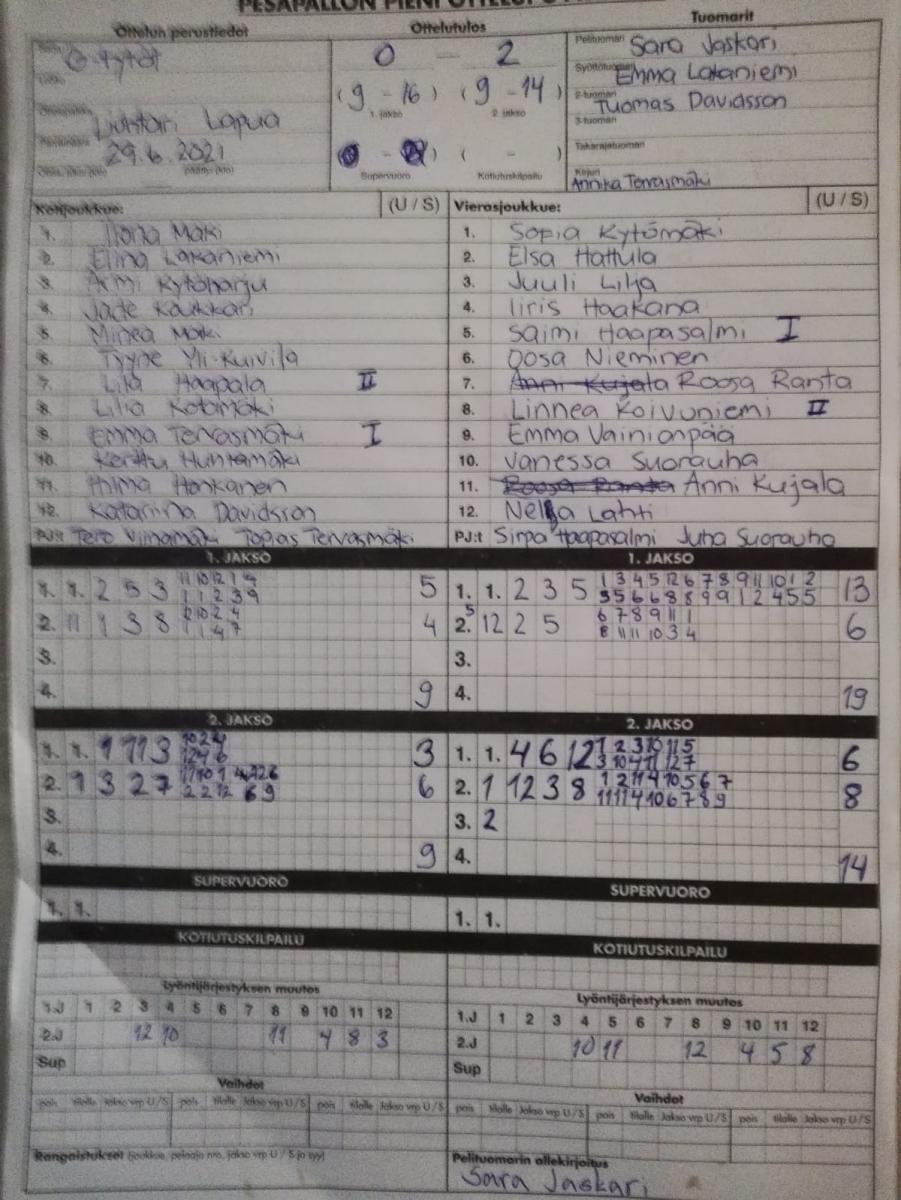 PESÄPALLON PIENI
Ottelun perustiedot
Ottelutulos
Tuomarit
G-tytöt
0 - 2
(9 - 16) (9 - 14)
1. jakso 2. jakso
( - )
Supervuoro Kotiutuskilpailu
Lapua
29.6.2021
päättyi (klo)
Pelituomari Sara Jaskari
Syöttötuomari Emma Lakaniemi
2-tuomari Tuomas Davidsson
3-tuomari
Takarajatuomari
Kirjuri Annika Tervasmäki
Kotijoukkue: (U / S)
1. Ilona Mäki
2. Elina Lakaniemi
3. Armi Kytöharju
4. Jade Kaukkari
5. Minea Mäki
6. Tyyne Yli-Kuivila
7. Lila Haapala II
8. Lilia Kotamäki
9. Emma Tervasmäki I
10. Kerttu Huhtamäki
11. Hilma Honkanen
12. Katariina Davidsson
PJ:t Tero Viinamäki Topias Tervasmäki
Vierasjoukkue: (U / S)
1. Sofia Kytömäki
2. Elsa Hattula
3. Juuli Lilja
4. Iiris Haakana
5. Saimi Haapasalmi I
6. Oosa Nieminen
7. Anni Kujala Roosa Ranta
8. Linnea Koivuniemi II
9. Emma Vainionpää
10. Vanessa Suorauha
11. Roosa Ranta Anni Kujala
12. Nella Lahti
PJ:t Sirpa Haapasalmi Juha Suorauha
1. JAKSO
1. 1. 2 5 3 11 10 12 1 9 5
1 1 2 3 9
2. 11 1 3 8 2 10 2 4 4
1 1 4 7
3.
4. 9
1. JAKSO
1. 1. 2 3 5 1 3 4 5 12 6 7 8 9 11 10 1 2 13
3 5 6 6 8 8 9 9 1 2 4 5 5
2. 5 12 2 5 6 7 8 9 11 1 6
8 11 11 10 3 4
3.
4. 19
2. JAKSO
1. 1. 1 7 11 3 10 2 4 3
12 4 6
2. 1 3 2 7 6
2 2 12 6 9
3.
4. 9
2. JAKSO
1. 1. 4 6 12 1 2 3 10 11 5 6
3 10 4 11 12 7
2. 1 12 3 8 1 2 11 4 10 5 6 7 8
11 11 4 10 6 7 8 9
3. 2
4. 14
SUPERVUORO
1. 1.
SUPERVUORO
1. 1.
KOTIUTUSKILPAILU
KOTIUTUSKILPAILU
Lyöntijärjestyksen muutos
1.J 1 2 3 4 5 6 7 8 9 10 11 12
2.J 12 10 11 4 8 3
Sup
Lyöntijärjestyksen muutos
1.J 1 2 3 4 5 6 7 8 9 10 11 12
2.J 10 11 12 4 5 8
Sup
Vaihdot
pois tilalle Jakso vrp U / S pois tilalle Jakso vrp U / S pois tilalle Jakso vrp U / S
Vaihdot
pois tilalle Jakso vrp U / S pois tilalle Jakso vrp U / S pois tilalle Jakso vrp U / S
Rangaistukset (joukkue, pelaaja nro, jakso vrp U / S ja syy)
Pelituomarin allekirjoitus
Sara Jaskari